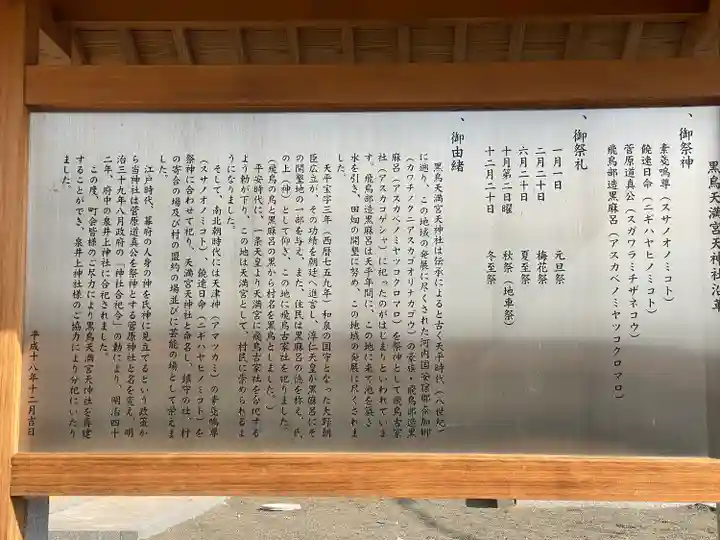 黒鳥天満宮天神社沿革
、御祭神
素戔嗚尊(スサノオノミコト)
饒速日命(ニギハヤヒノミコト)
菅原道真公(スガワラミチザネコウ)
飛鳥部造黒麻呂(アスカベノミヤツコクロマロ)
、御祭礼
一月一日 元旦祭
二月二十日 梅花祭
六月二十日 夏至祭
十月第二日曜 秋祭(地車祭)
十二月二十日 冬至祭
、御由緒
黒鳥天満宮天神社は伝承によると古く天平時代(八世紀)
に遡り、この地域の発展に尽くされた河内国安宿郡奈加郷
(カワチノクニアスカゴオリナカゴウ)の豪族・飛鳥部造黒
麻呂(アスカベノミヤツコクロマロ)を祭神として飛鳥古家
社(アスカコゲンシャ)に祀ったのがはじまりといわれていま
す。飛鳥部造黒麻呂は天平年間に、この地に来て池を築き
水を引き、田畑の開墾に努め、この地域の発展に尽くされま
した。
天平宝字三年(西暦七五九年)和泉の国守となった大野朝
臣広立が、その功績を朝廷へ進言し、淳仁天皇が黒麻呂にそ
の開墾地の一部を与え、また、住民は黒麻呂の徳を称え、氏
の上(神)として仰ぎ、この地に飛鳥古家社を祀りました。
(飛鳥の鳥と黒麻呂の黒から村名を黒鳥としました。)
平安時代に、一条天皇より天満宮に飛鳥古家社を合祀する
よう勅が下り、この地は天満宮として、村民に崇められるよ
うになりました。
そして、南北朝時代には天津神(アマツカミ)の素戔嗚尊
(スサノオノミコト)、饒速日命(ニギハヤヒノミコト)を
祭神に合わせて祀り、天満宮天神社と命名し、鎮守の社、村
の寄合の場及び村の盟約の場並びに芸能の場として栄えま
した。
江戸時代、幕府の人身の神を氏神に見立てるという政策か
ら当神社は菅原道真公を祭神とする菅原神社と名を変え、明
治三十九年八月政府の「神社合祀令」の勅により、明治四十
二年、府中の泉井上神社に合祀されました。
この度、町会皆様のご尽力により黒鳥天満宮天神社を再建
することができ、泉井上神社様のご協力により分祀にいたり
ました。
平成十八年十二月吉日